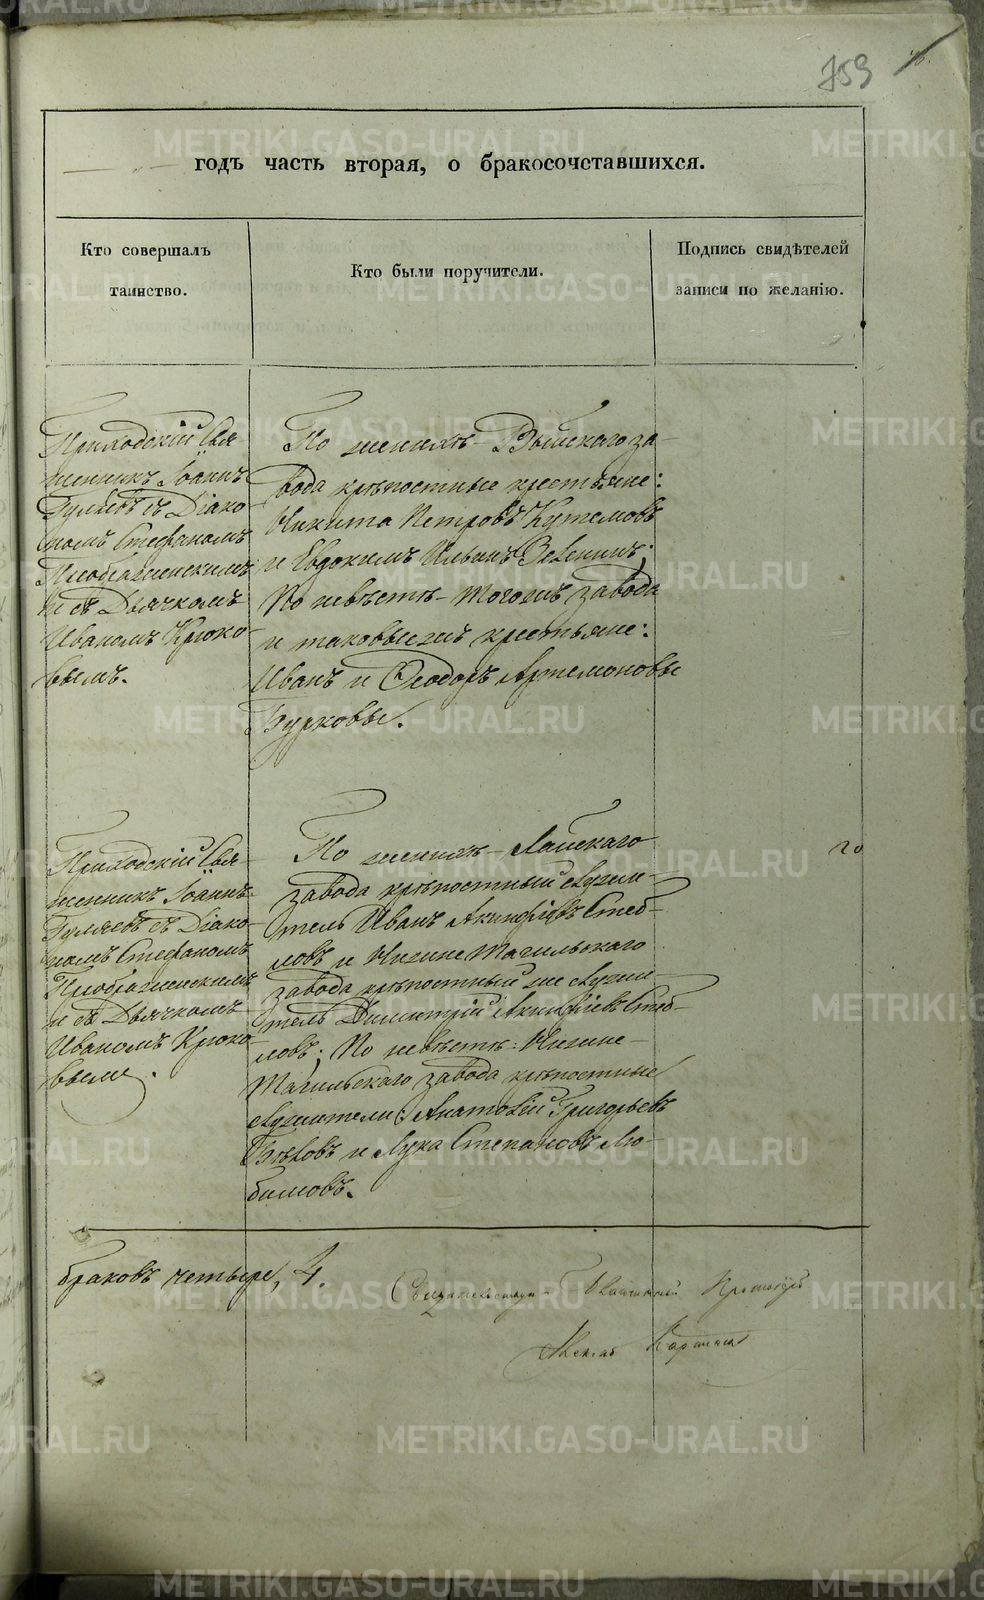 759
годъ часть вторая, о бракосочетавшихся.
Кто совершалъ
таинство.
Кто были поручители.
Подпись свидѣтелей
записи по желанію.
Приходскій Свя-
щенникъ Іоаннъ
Гуляевъ съ Діако-
номъ Стефаномъ
Преображенскимъ
и съ Дьячкомъ
Иваномъ Крюко-
вымъ.
По женихѣ - Выйскаго за-
вода крѣпостные крестьяне:
Никита Петровъ Кутемовъ
и Евдокимъ Ильинъ Зеленинъ;
По невѣстѣ - тогожъ завода
и таковыежъ крестьяне:
Иванъ и Ѳеодоръ Артемоновы
Бурковы.
Приходскій Свя-
щенникъ Іоаннъ
Гуляевъ съ Діако-
номъ Стефаномъ
Преображенскимъ
и съ Дьячкомъ
Иваномъ Крюко-
вымъ.
По женихѣ - Лайскаго
завода крѣпостный служи-
тель Иванъ Акинфіевъ Стеб-
ловъ и Нижне Тагильскаго
завода крѣпостный же служи-
тель Димитрій Акинфіевъ Стеб-
ловъ; По невѣстѣ: Нижне-
Тагильскаго завода крѣпостные
служители: Анатолій Григорьевъ
Бѣловъ и Лука Степановъ Лю-
бимовъ.
20
браковъ четыре, 4.
METRIKI.GASO-URAL.RU